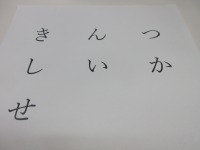 きんつ
しいか
せ